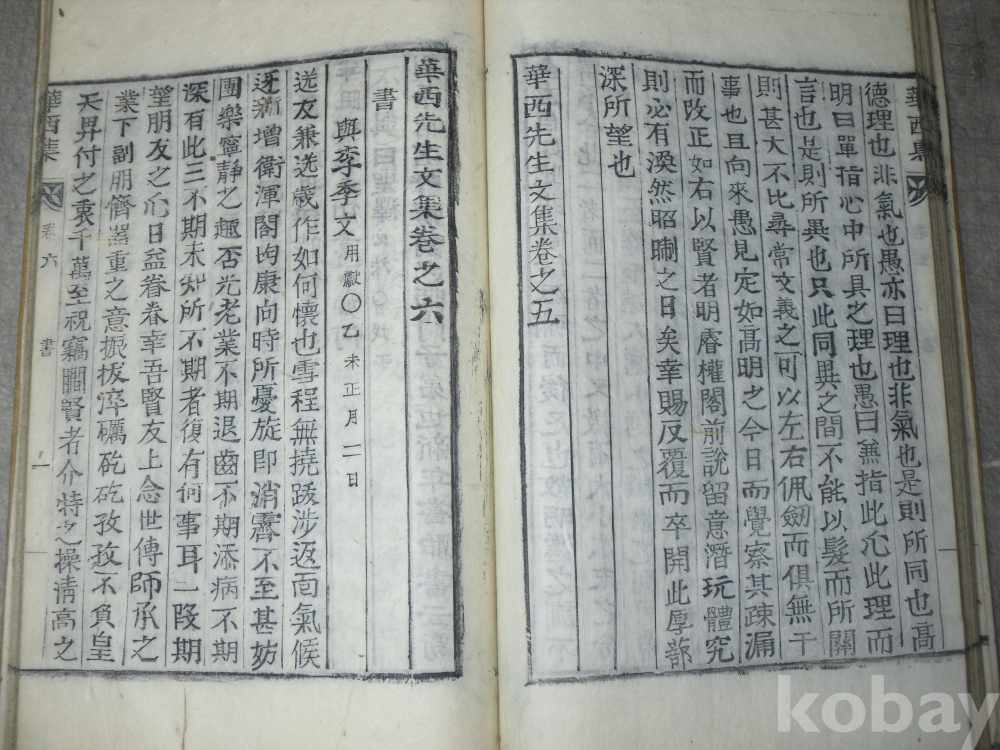 德理也非氣也愚亦曰理也非氣也是則所同也高
明曰單指心中所具之理也愚曰無指此心此理而
言也是則所異也只此同異之間不能以髮而所關
則甚大不比尋常文義之可以左右佩劒而俱無干
事也且向來愚見定如高明之今日而覺察其疎漏
而改正如右以賢者明睿權閣前說留意潛玩體究
則必有渙然昭晣之日矣幸賜反覆而卒開此厚蔀
深所望也
華西先生文集卷之五
華西先生文集卷之六
書
與李季文用獻〇乙未正月二日
送友兼送歲作如何懷也雪程無撓跋涉返面氣候
迓新增衛渾閤均康向時所憂旋即消霽不至甚妨
團樂寧靜之趣否光老業不期退齒不期添病不期
深有此三不期未知所不期者復有何事耳二段期
望朋友之心日益眷眷幸吾賢友上念世傳師承之
業下副朋儕器重之意振拔淬礪矻矻孜孜不負皇
天畀付之衷千萬至祝竊覵賢者介特之操淸高之
華西集 卷六 書 一
kobay